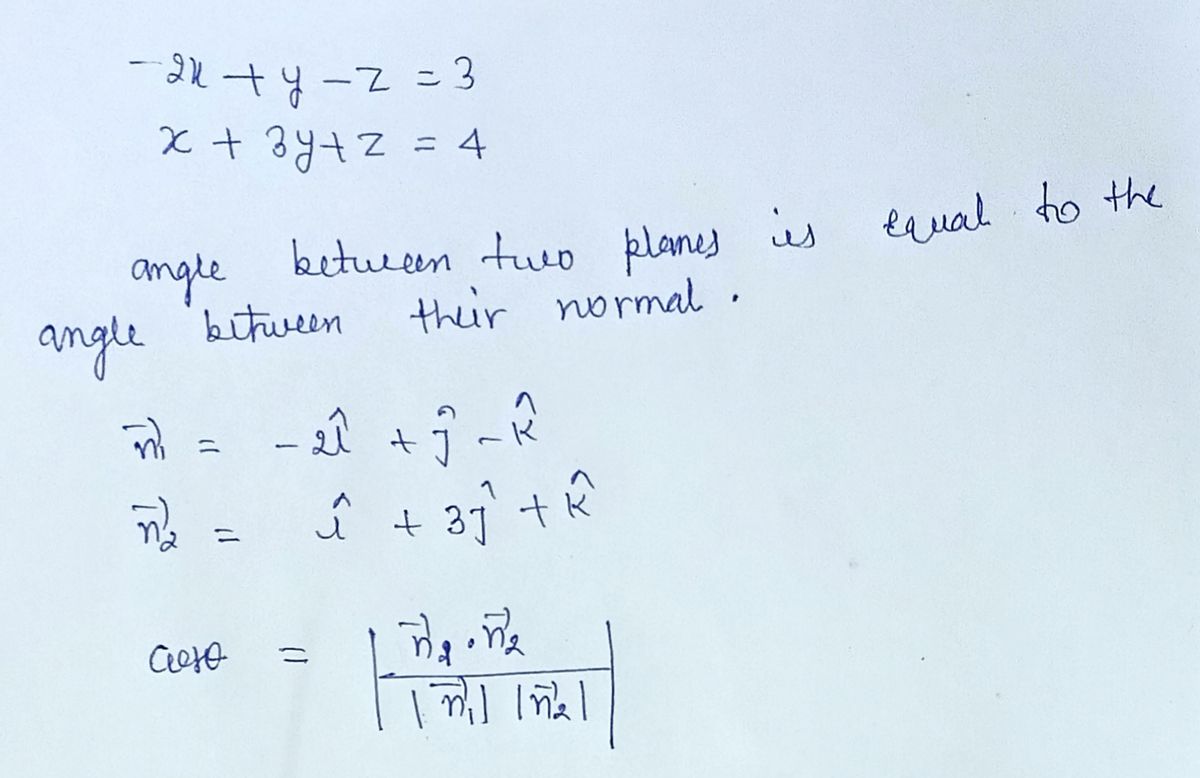 -2x + y - z = 3
x + 3y + z = 4
angle between two planes is equal to the
angle between their normal.
n⃗₁ = -2î + ĵ - k̂
n⃗₂ = î + 3ĵ + k̂
cosθ = | n⃗₂ · n⃗₂ / |n⃗₁| |n⃗₂| |